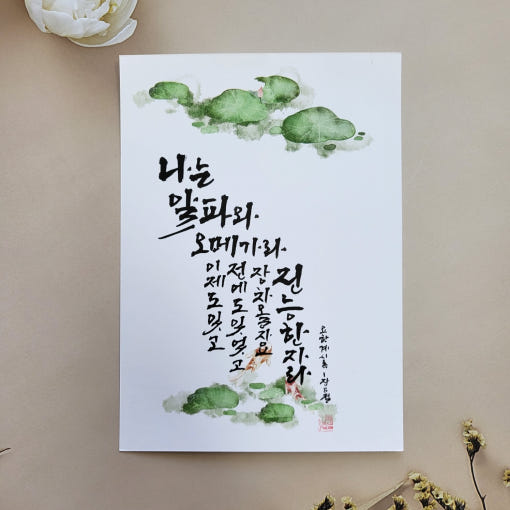 나는
알파와
오메가라
이제도 있고
전에도 있었고
장차 올 자요
전능한 자라
요한계시록 1장 8절